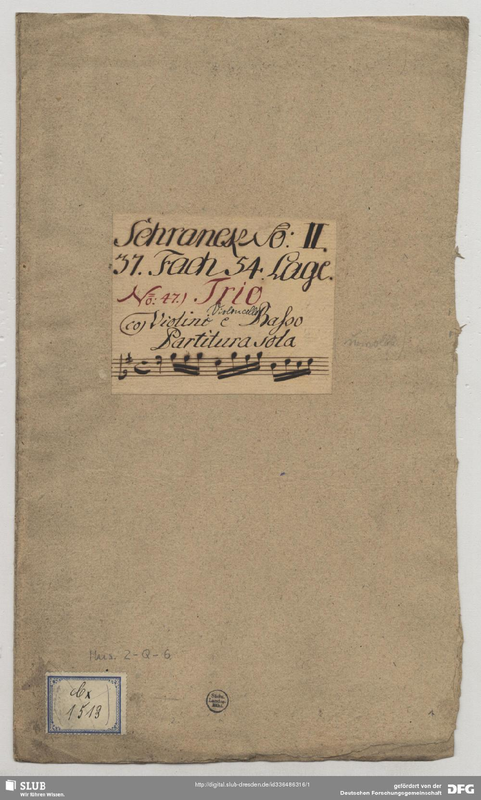 Schranck No: II.
37. Fach 54. Lage.
No: 47.) Trio
Violoncello
co Violino e Basso
Partitura sola
Mus. 2-Q-6
Cx
1513
SLUB
Wir führen Wissen.
http://digital.slub-dresden.de/id336486316/1
gefördert von der
Deutschen Forschungsgemeinschaft
DFG